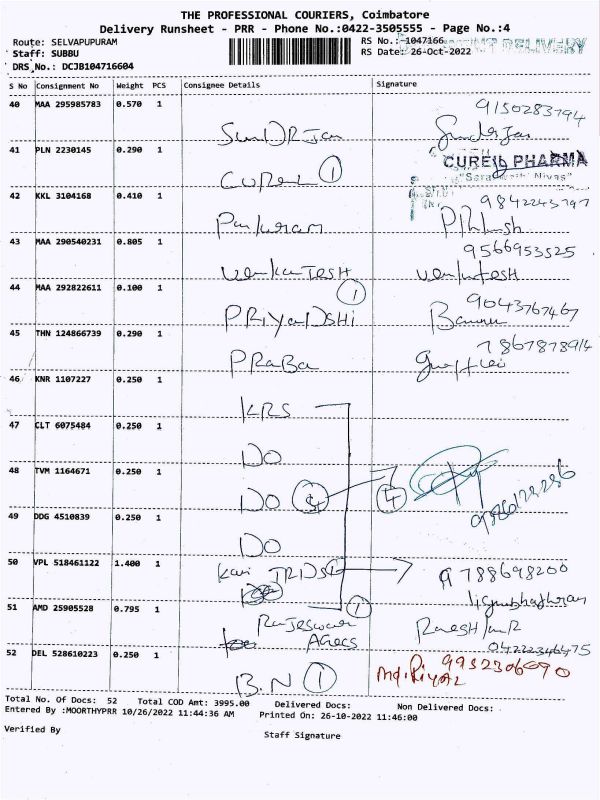 THE PROFESSIONAL COURIERS, Coimbatore
Delivery Runsheet - PRR - Phone No.:0422-3505555 - Page No.:4
Route: SELVAPUPURAM RS No.: 1047166 DELIVERY
Staff: SUBBU RS Date: 26-Oct-2022
DRS No.: DCJB104716604
S No Consignment No Weight PCS Consignee Details Signature
40 MAA 295985783 0.570 1 9150283794
41 PLN 2230145 0.290 1 1 CUREIL PHARMA
42 KKL 3104168 0.410 1
43 MAA 290540231 0.805 1 VenkaTESH 9566953525 Venkatesh
44 MAA 292822611 0.100 1 PRIYaDSHi 1 9043767467
45 THN 124866739 0.290 1 PRaBa 7867878914
46 KNR 1107227 0.250 1 KRS
47 CLT 6075484 0.250 1 DO
48 TVM 1164671 0.250 1 DO 4
49 DDG 4510839 0.250 1 DO
50 VPL 518461122 1.400 1 9788698200
51 AMD 25905528 0.795 1 Rajeswari 1
52 DEL 528610223 0.250 1 B.N 1 Md.Riyaz
Total No. Of Docs: 52 Total COD Amt: 3995.00 Delivered Docs: Non Delivered Docs:
Entered By :MOORTHYPRR 10/26/2022 11:44:36 AM Printed On: 26-10-2022 11:46:00
Verified By Staff Signature